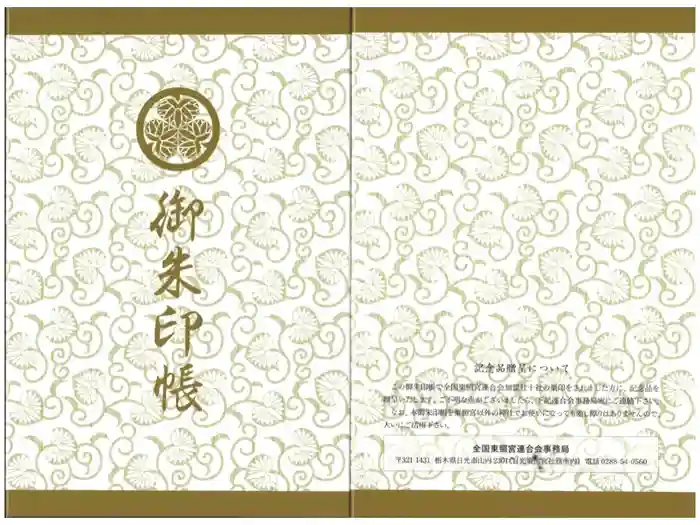 御朱印帳
記念品贈呈について
この御朱印帳で全国東照宮連合会加盟社十社の朱印をされました方に、記念品を
贈呈いたします。ご不明な点がございましたら、下記連合会事務局宛にご連絡下さい。
なお、本御朱印帳を東照宮以外の神社でお使いになっても差し障りはありませんので、
大いにご活用下さい。
全国東照宮連合会事務局
〒321-1431 栃木県日光市山内2301(日光東照宮社務所内) 電話 0288-54-0560